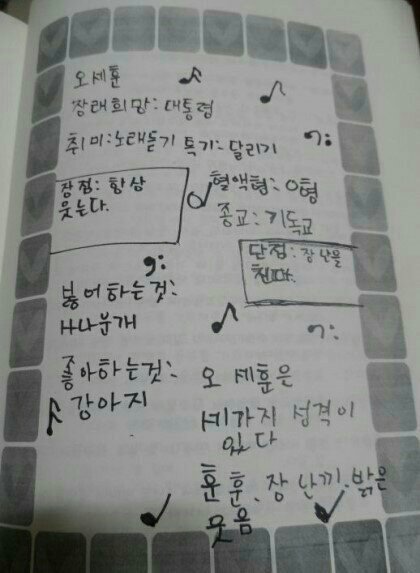 오세훈
장래희망:대통령
취미:노래듣기 특기:달리기
장점: 항상
웃는다.
혈액형: O형
종교:기독교
단점: 장난을
친다.
싫어하는것:
바나분개
좋아하는것:
강아지
오 세훈은
세가지 성격이
있다
훈훈, 장난끼, 밝은
웃음